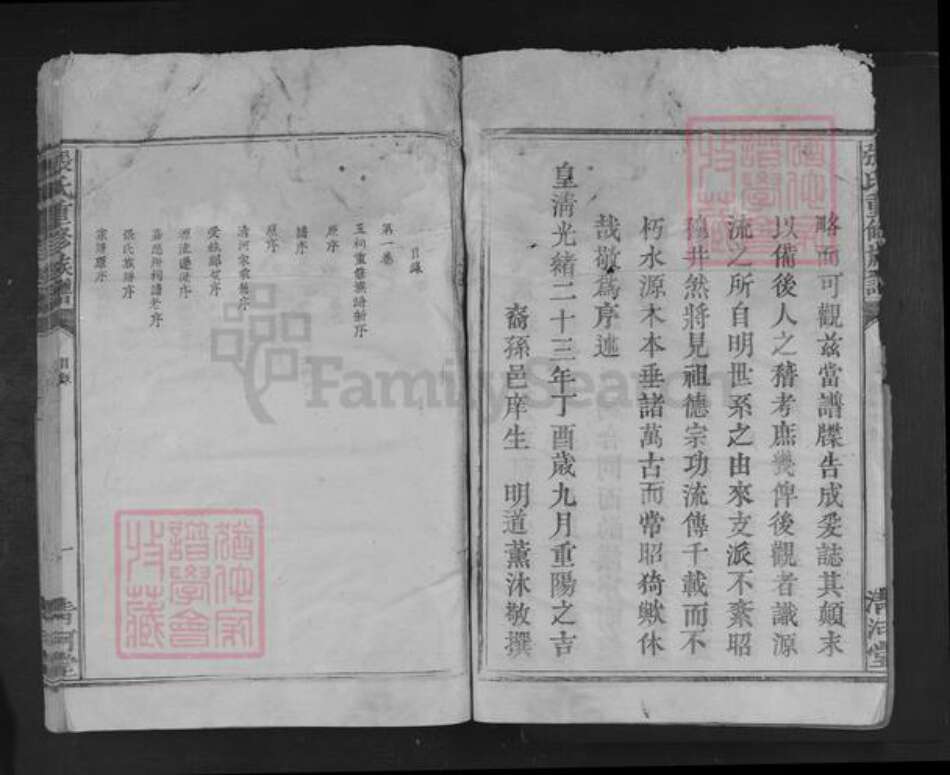 張氏重修族譜
清河堂
略而可觀茲當譜牒告成爰誌其顛末
以備後人之稽考庶幾俾後觀者識源
流之所自明世系之由來支派不紊昭
穆井然將見祖德宗功流傳千載而不
朽水源木本垂諸萬古而常昭猗歟休
哉敬為序述
皇清光緒二十三年丁酉歲九月重陽之吉
裔孫邑庠生 明道薰沐敬撰
目錄
第一卷
玉祠重修族譜新序
原序
譜序
原序
清河家乘舊序
源流遷徙序
張氏族譜序
宗譜原序
張氏重修族譜
目錄
一
清河堂
FamilySearch